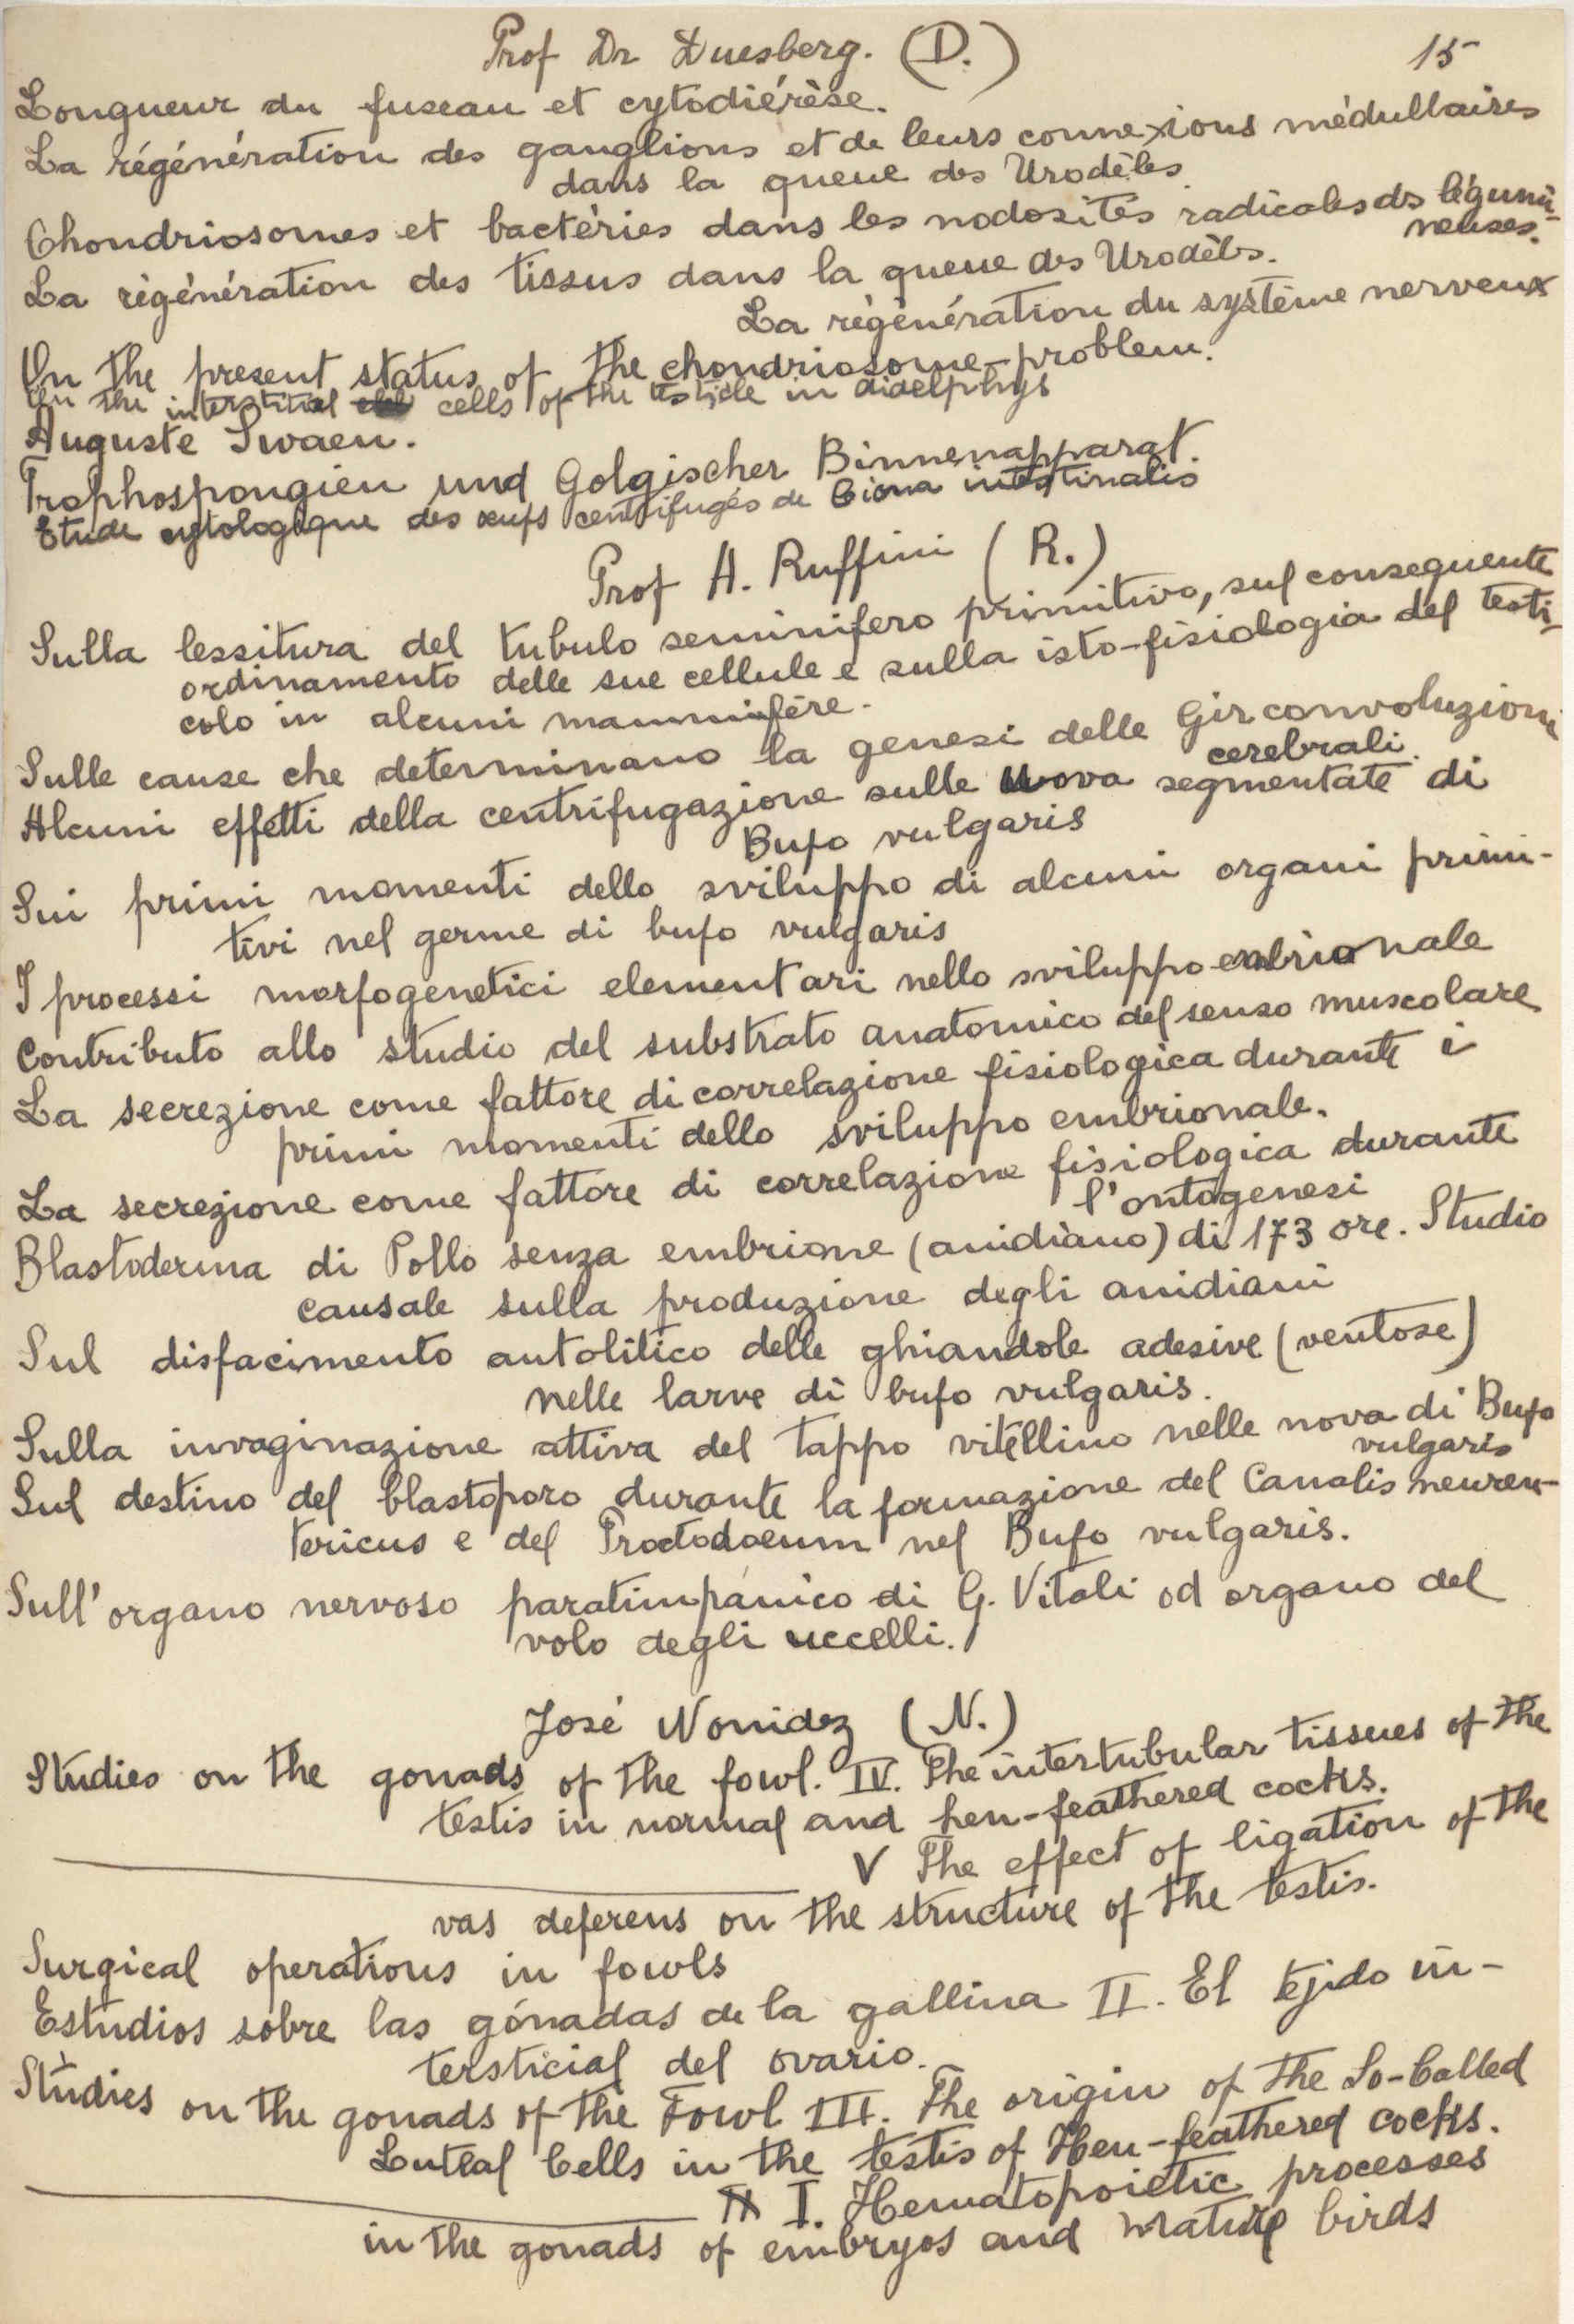 Prof Dr Duesberg. (D.)
15
Longueur du fuseau et cytodiérèse.
La régénération des ganglions et de leurs connexions médullaires
dans la queue des Urodèles
Chondriosomes et bactéries dans les nodosités radicales des légumi-
neuses.
La régénération des tissus dans la queue des Urodèles.
La régénération du système nerveux
On the present status of the chondriosome-problem.
On the interstitial cells of the testicle in didelphys
Auguste Swaen.
Trophospongien und Golgischer Binnenapparat.
Etude cytologique des œufs centrifugés de Ciona intestinalis
Prof A. Ruffini (R.)
Sulla lessitura del tubulo seminifero primitivo, sul conseguente
ordinamento delle sue cellule e sulla isto-fisiologia del testi-
colo in alcuni mammifere.
Sulle cause che determinano la genesi delle Girconvoluzioni
cerebrali.
Alcuni effetti della centrifugazione sulle uova segmentate di
Bufo vulgaris
Sui primi momenti dello sviluppo di alcuni organi primi-
tivi nel germe di bufo vulgaris
I processi morfogenetici elementari nello sviluppo embrionale
Contributo allo studio del substrato anatomico del senso muscolare
La secrezione come fattore di correlazione fisiologica durante i
primi momenti dello sviluppo embrionale.
La secrezione come fattore di correlazione fisiologica durante
l'ontogenesi
Blastoderma di Pollo senza embrione (anidiano) di 173 ore. Studio
causale sulla produzione degli anidiani
Sul disfacimento autolitico delle ghiandole adesive (ventose)
nelle larve di bufo vulgaris.
Sulla invaginazione attiva del tappo vitellino nelle nova di Bufo
vulgaris
Sul destino del blastoporo durante la formazione del Canalis neuren-
tericus e del Proctodaeum nel Bufo vulgaris.
Sull'organo nervoso paratimpánico di G. Vitali od organo del
volo degli uccelli.
José Nonidez (N.)
Studies on the gonads of the fowl. IV. The intertubular tissues of the
testis in normal and hen-feathered cocks.
V The effect of ligation of the
vas deferens on the structure of the testis.
Surgical operations in fowls
Estudios sobre las gónadas de la gallina II. El tejido in-
tersticial del ovario.
Studies on the gonads of the Fowl III. The origin of the So-Called
Luteal Cells in the testis of Hen-feathered cocks.
I. Hematopoietic processes
in the gonads of embryos and mature birds